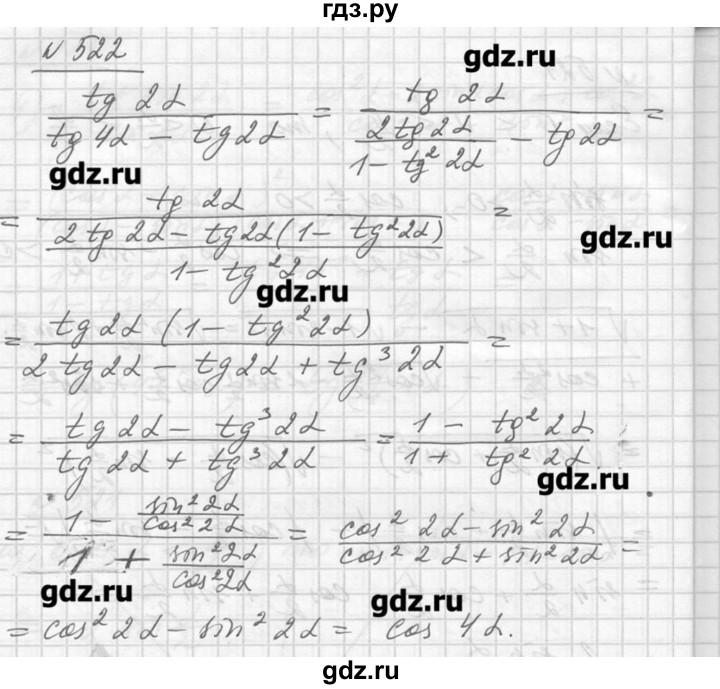 гдз.ру
№ 522
gdz.ru
tg 2α / (tg 4α − tg 2α) = tg 2α / (2 tg 2α / (1 − tg² 2α) − tg 2α) =
gdz.ru
= tg 2α / ((2 tg 2α − tg 2α (1 − tg² 2α)) / (1 − tg² 2α)) =
gdz.ru
gdz.ru
= tg 2α (1 − tg² 2α) / (2 tg 2α − tg 2α + tg³ 2α) =
= (tg 2α − tg³ 2α) / (tg 2α + tg³ 2α) = (1 − tg² 2α) / (1 + tg² 2α)
gdz.ru
= (1 − sin² 2α / cos² 2α) / (1 + sin² 2α / cos² 2α) = (cos² 2α − sin² 2α) / (cos² 2α + sin² 2α) =
gdz.ru
gdz.ru
= cos² 2α − sin² 2α = cos 4α.
gdz.ru